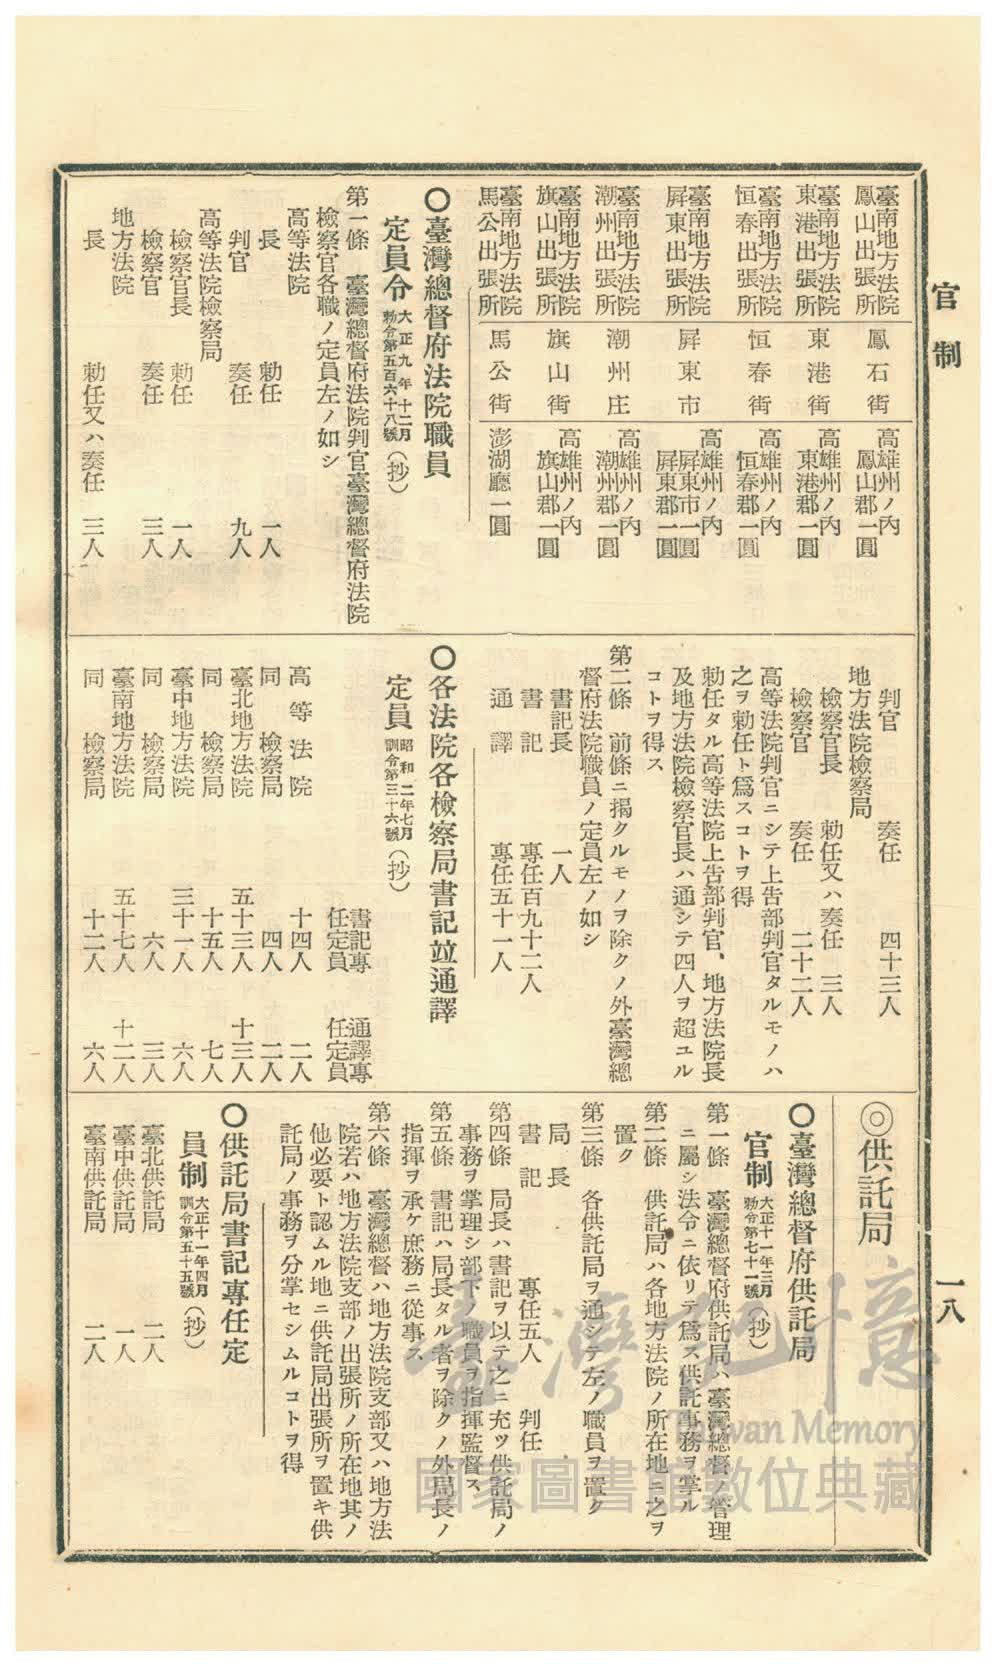 官制
一八
臺南地方法院鳳山出張所 鳳石街 高雄州ノ內鳳山郡一圓
臺南地方法院東港出張所 東港街 高雄州ノ內東港郡一圓
臺南地方法院恒春出張所 恒春街 高雄州ノ內恒春郡一圓
臺南地方法院屏東出張所 屏東市 高雄州ノ內屏東市一圓屏東郡一圓
臺南地方法院潮州出張所 潮州庄 高雄州ノ內潮州郡一圓
臺南地方法院旗山出張所 旗山街 高雄州ノ內旗山郡一圓
臺南地方法院馬公出張所 馬公街 澎湖廳一圓
○臺灣總督府法院職員
定員令 大正九年十二月勅令第五百六十八號(抄)
第一條 臺灣總督府法院判官臺灣總督府法院
檢察官各職ノ定員左ノ如シ
高等法院
長 勅任 一人
判官 奏任 九人
高等法院檢察局
檢察官長 勅任 一人
檢察官 奏任 三人
地方法院
長 勅任又ハ奏任 三人
判官 奏任 四十三人
地方法院檢察局
檢察官長 勅任又ハ奏任 三人
檢察官 奏任 二十二人
高等法院判官ニシテ上告部判官タルモノハ
之ヲ勅任ト爲スコトヲ得
勅任タル高等法院上告部判官、地方法院長
及地方法院檢察官長ハ通シテ四人ヲ超ユル
コトヲ得ス
第二條 前條ニ揭クルモノヲ除クノ外臺灣總
督府法院職員ノ定員左ノ如シ
書記長 一人
書記 專任百九十二人
通譯 專任五十一人
○各法院各檢察局書記竝通譯
定員 昭和二年七月訓令第三十六號(抄)
書記專任定員 通譯專任定員
高等法院 十四人 二人
同 檢察局 四人 二人
臺北地方法院 五十三人 十三人
同 檢察局 十五人 七人
臺中地方法院 三十一人 六人
同 檢察局 六人 三人
臺南地方法院 五十七人 十二人
同 檢察局 十二人 六人
◎供託局
○臺灣總督府供託局
官制 大正十一年三月勅令第七十一號(抄)
第一條 臺灣總督府供託局ハ臺灣總督ノ管理
ニ屬シ法令ニ依リテ爲ス供託事務ヲ掌ル
第二條 供託局ハ各地方法院ノ所在地ニ之ヲ
置ク
第三條 各供託局ヲ通シテ左ノ職員ヲ置ク
局長
書記 專任五人 判任
第四條 局長ハ書記ヲ以テ之ニ充ツ供託局ノ
事務ヲ掌理シ部下ノ職員ヲ指揮監督ス
第五條 書記ハ局長タル者ヲ除クノ外局長ノ
指揮ヲ承ケ庶務ニ從事ス
第六條 臺灣總督ハ地方法院支部又ハ地方法
院若ハ地方法院支部ノ出張所ノ所在地其ノ
他必要ト認ムル地ニ供託局出張所ヲ置キ供
託局ノ事務ヲ分掌セシムルコトヲ得
○供託局書記專任定
員制 大正十一年四月訓令第五十五號(抄)
臺北供託局 二人
臺中供託局 一人
臺南供託局 二人
臺灣記憶
Taiwan Memory
國家圖書館數位典藏